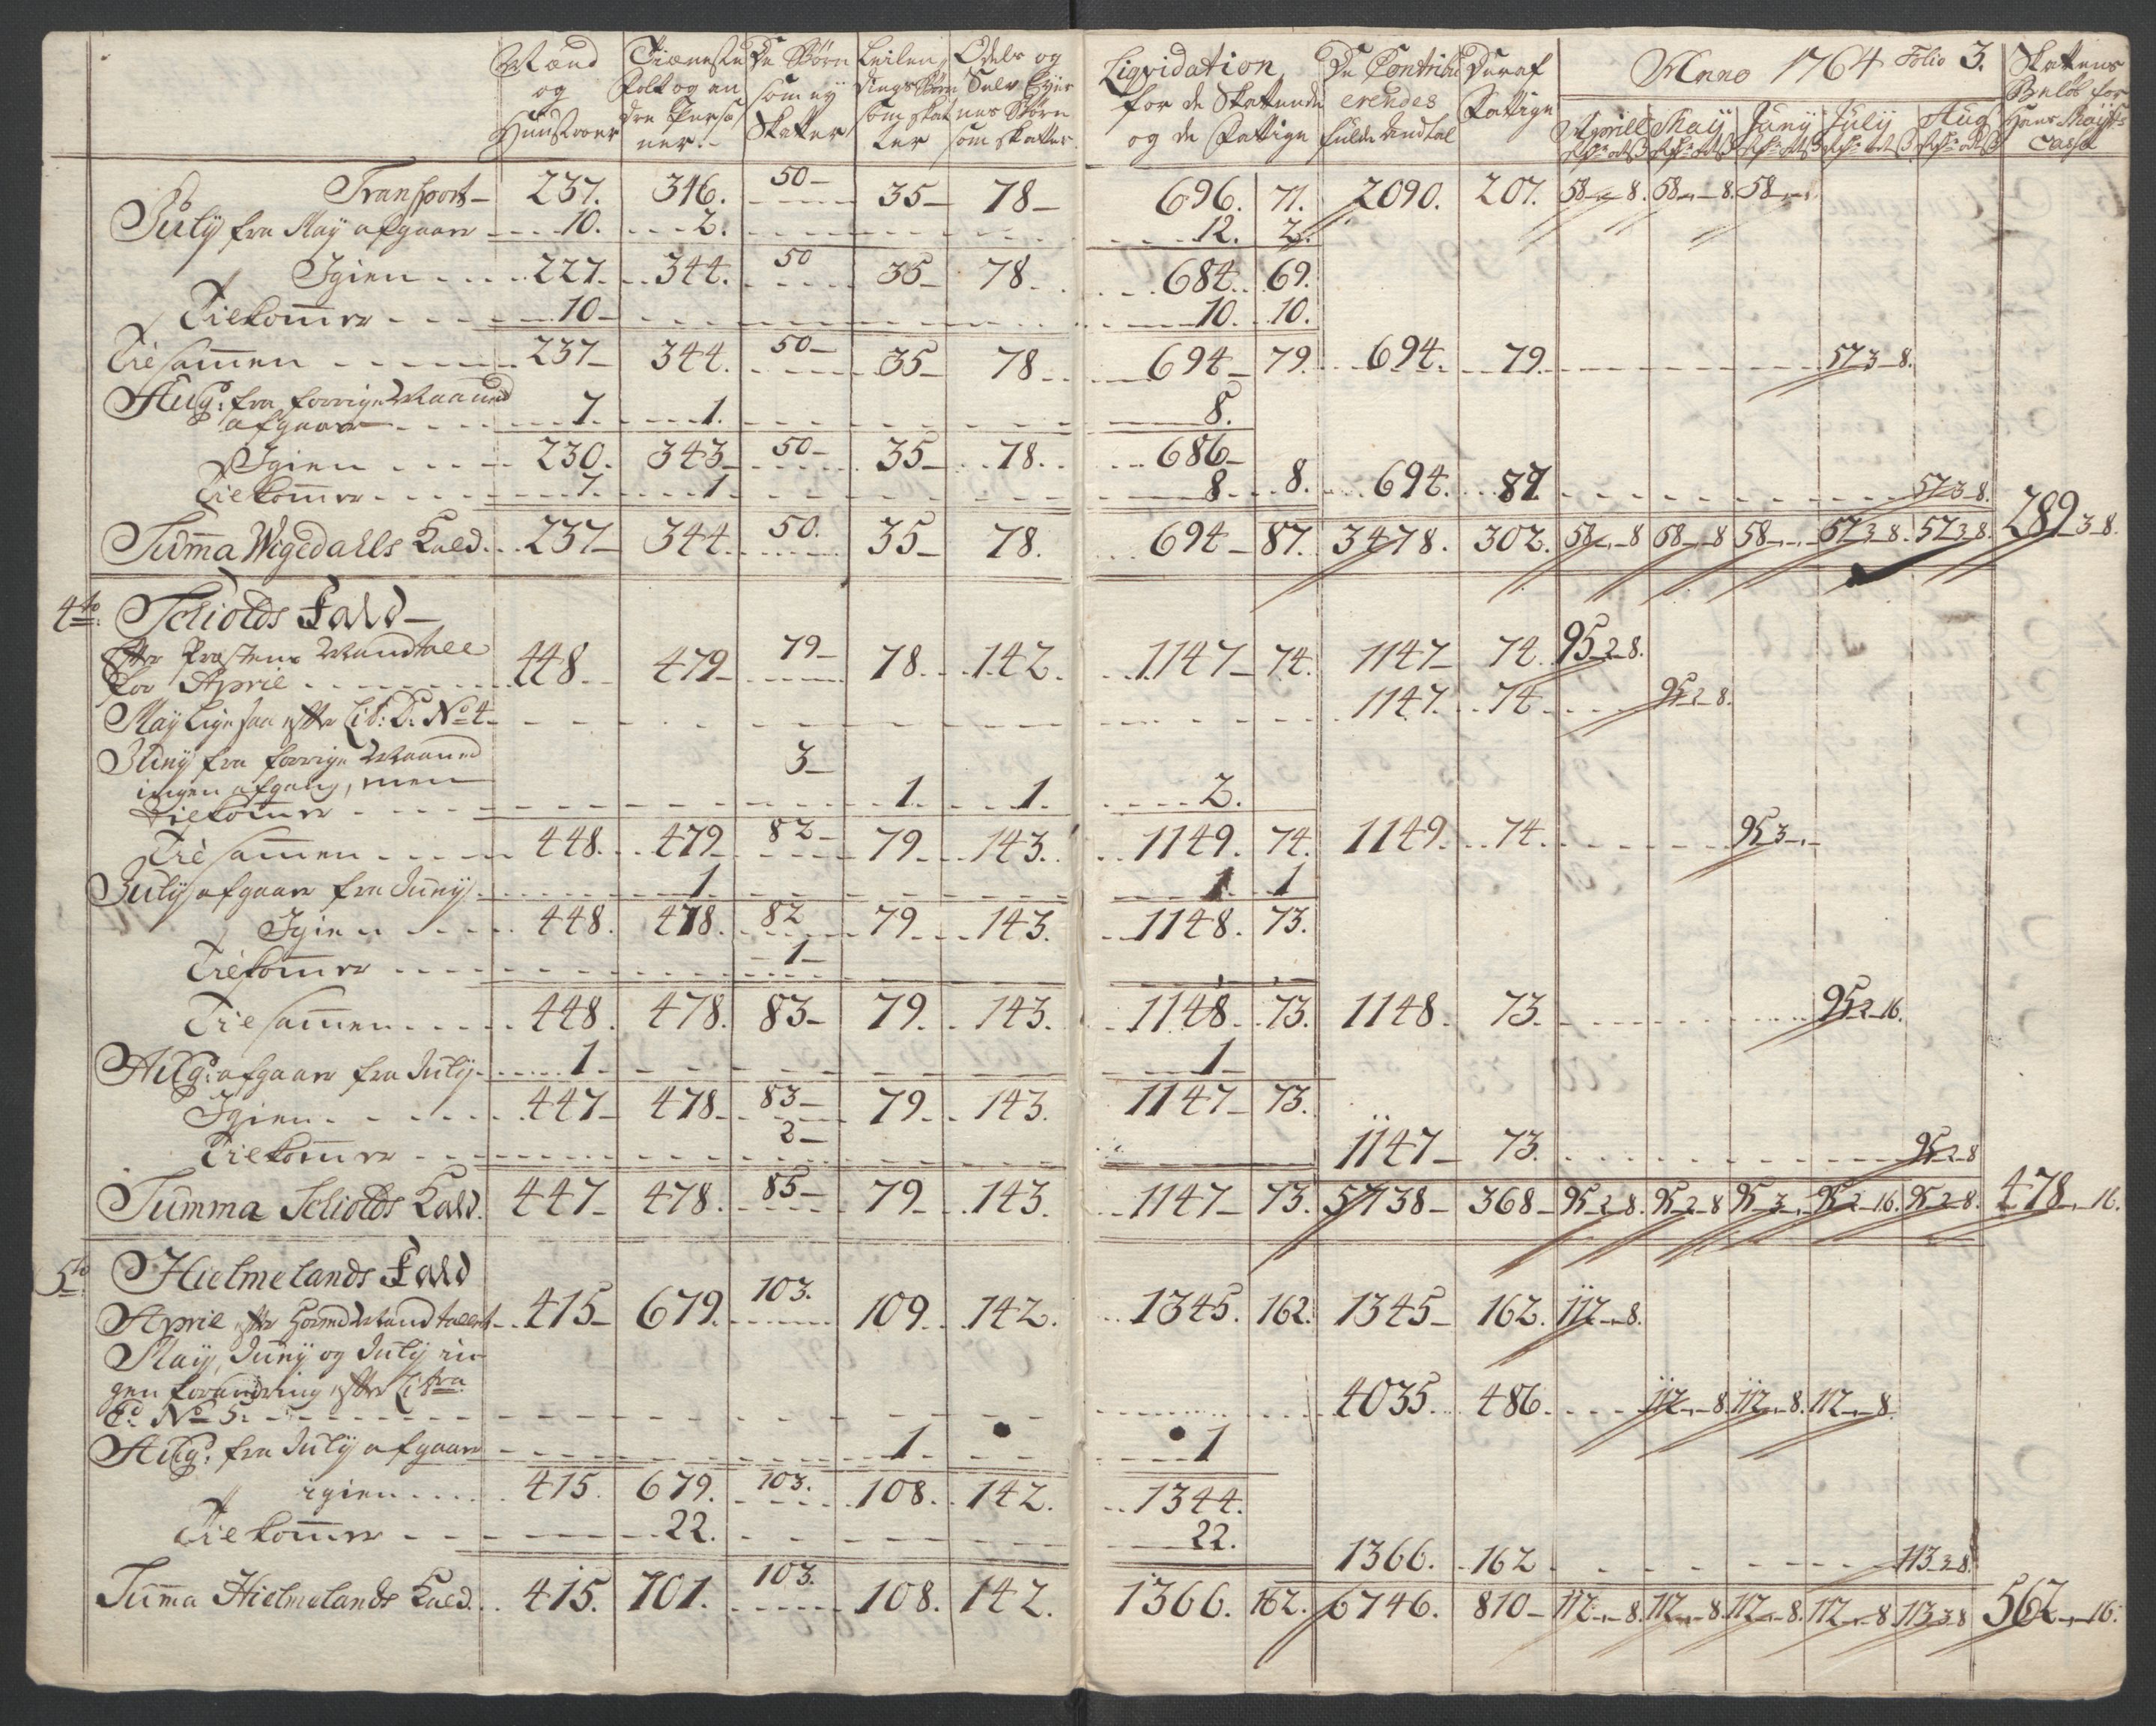 Mænd og Huustroer | Tieneste Folk og an dre Perso ner.- | De Børn som ey Skatter | Leilen dings Børn som skat ter | Odels og Selv Eyer nes Børn som skatter | Liqvidation for de Skattende og de Fattige | De Contribu erendes fulde Andtal | Deraf Fattige | Anno 1764 Folio 3. | Skattens Beløb for Hans Mayts Cassa
Aprill | May | Juny | July | Aug
Transport - 237. 346. 50- 35- 78- 696. 71. 2090. 207. 58-„-8. 58-„-8. 58-„-„
July fra May afgaar 10. 2. 12. 2.
Igien 227. 344. 50 35- 78. 684. 69.
Tilkommer 10- 10. 10.
Tilsammen 237- 344. 50- 35- 78 694- 79. 694. 79. 57.3-8.
Aug: fra forrige Maaned
afgaar 7. 1. 8.
Igien 230. 343- 50- 35- 78. 686-
Tilkommer 7. 1 8 8. 694. 87. 57.3-8.
Summa Wigedahls Kald. 237- 344. 50. 35- 78. 694- 87. 3478. 302. 58-„-8 58-„-8 58-„-„ 57.3.8. 57.3.8. 289-3-8.
4to Schiolds Kald-
Efter Præstens Mandtall
for April 448. 479- 79- 78. 142. 1147- 74. 1147- 74. 95-2-8.
May ligesaa efter Lit: D: No 4- 1147. 74 95-2-8.
Juny fra forrige Maaned
ingen afgang, men
Tilkommer 3- 1. 1. 2.
Tilsammen 448. 479 82- 79. 143. 1149. 74. 1149. 74. 95.3-„-
July afgaar fra Juny 1 1 1
Igien 448. 478. 82 79. 143. 1148. 73.
Tilkommer 1-
Tilsammen 448. 478. 83- 79. 143. 1148. 73. 1148. 73. 95-2-16.
Aug: afgaar fra July 1 1-
Igien 447- 478- 83- 79. 143. 1147- 73.
Tilkommer 2- 1147- 73. 95-2-8
Summa Schiolds Kald. 447- 478. 85- 79- 143. 1147- 73. 5738- 368- 95-2-8. 95-2-8 95-3-„- 95-2-16. 95-2-8. 478-„-16.
5to Hielmelands Kald
April efter Hosmd Mandtallet 415- 679. 103. 109. 142. 1345. 162. 1345- 162. 112-„-8.
May, Juny og July in
gen forandring efter Litra
D: No 5. 4035. 486. 112-„-8. 112-„-8. 112-„-8
Aug: fra July afgaar 1. 1
igien 415. 679. 103. 108. 142. 1344.
Tilkommer 22. 22. 1366. 162 113-3-8.
Summa Hielmelands Kald. 415. 701. 103. 108. 142. 1366. 162. 6746. 810- 112-„-8. 112-„-8. 112-„-8. 112-„-8 113.3.8 562-„-16.